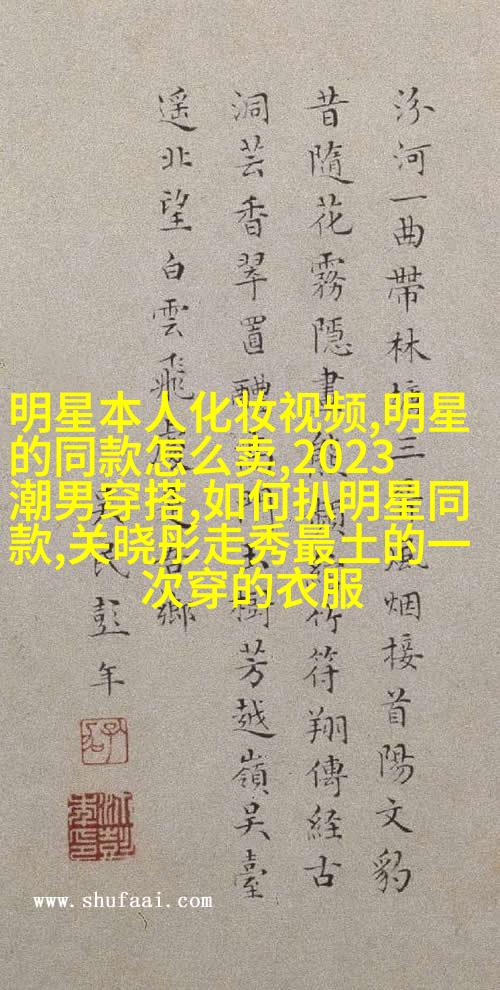 汾河一曲帶林三風烟接首陽文豹
昔隨花霧隱畫竹符翔傳經古
洞芸香翠置醴門樹芳越嶺吴臺
遥北望白雲飛鄉
民彭年
明星本人化妆视频,明星
的同款怎么卖,2023
潮男穿搭,如何扒明星同
款,关晓彤走秀最土的一
次穿的衣服
www.shufaai.com